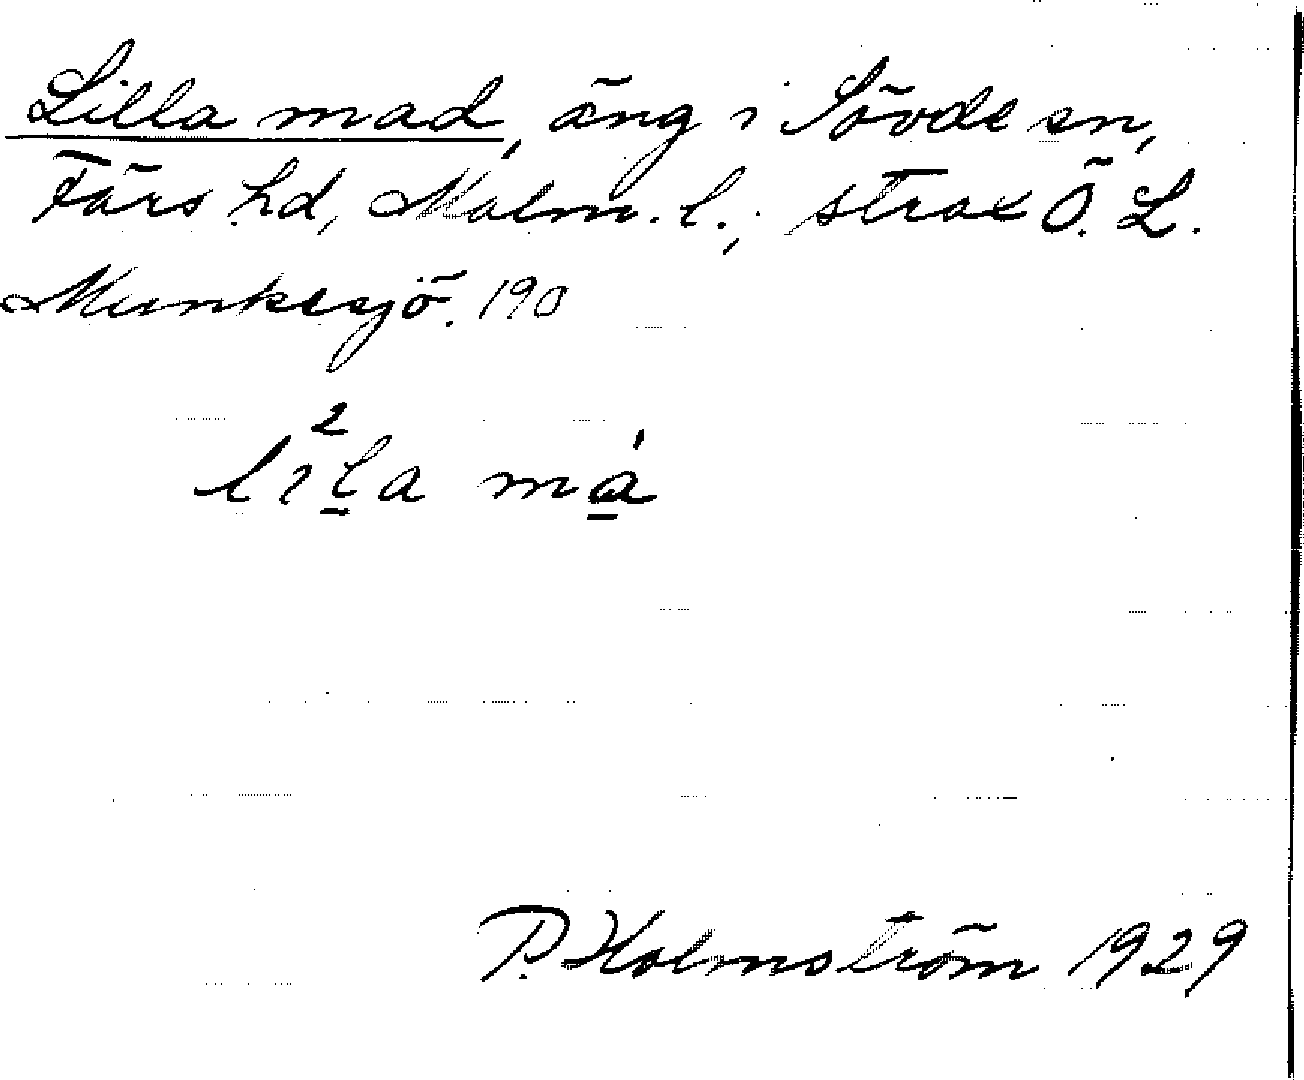 Lilla mad, äng i Sövde sn,
Färs hd, Malm. l.; strax Ö. L.
Munkesjö. 190
²lila má
P. Holmström 1929